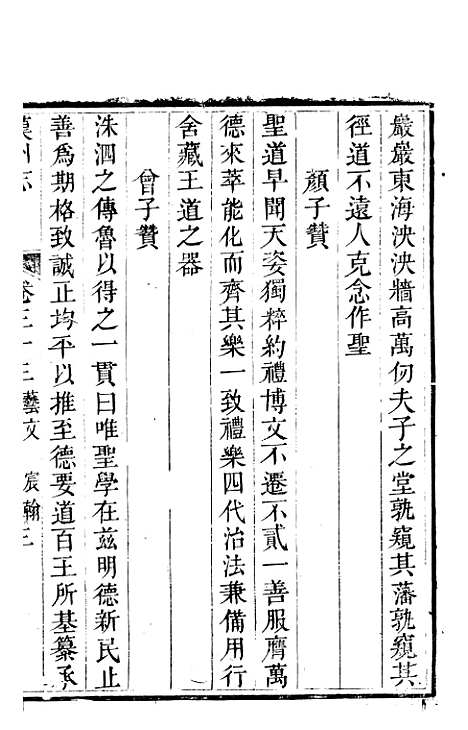 巖巖東海泱泱牆高萬仞夫子之堂孰窺其藩孰窺其
徑道不遠人克念作聖
顏子贊
聖道早聞天姿獨粹約禮博文不遷不貳一善服膺萬
德來萃能化而齊其樂一致禮樂四代治法兼備用行
舍藏王道之器
曾子贊
洙泗之傳魯以得之一貫曰唯聖學在茲明德新民止
善爲期格致誠正均平以推至德要道百王所基纂承
州志 卷三十三藝文 宸翰三